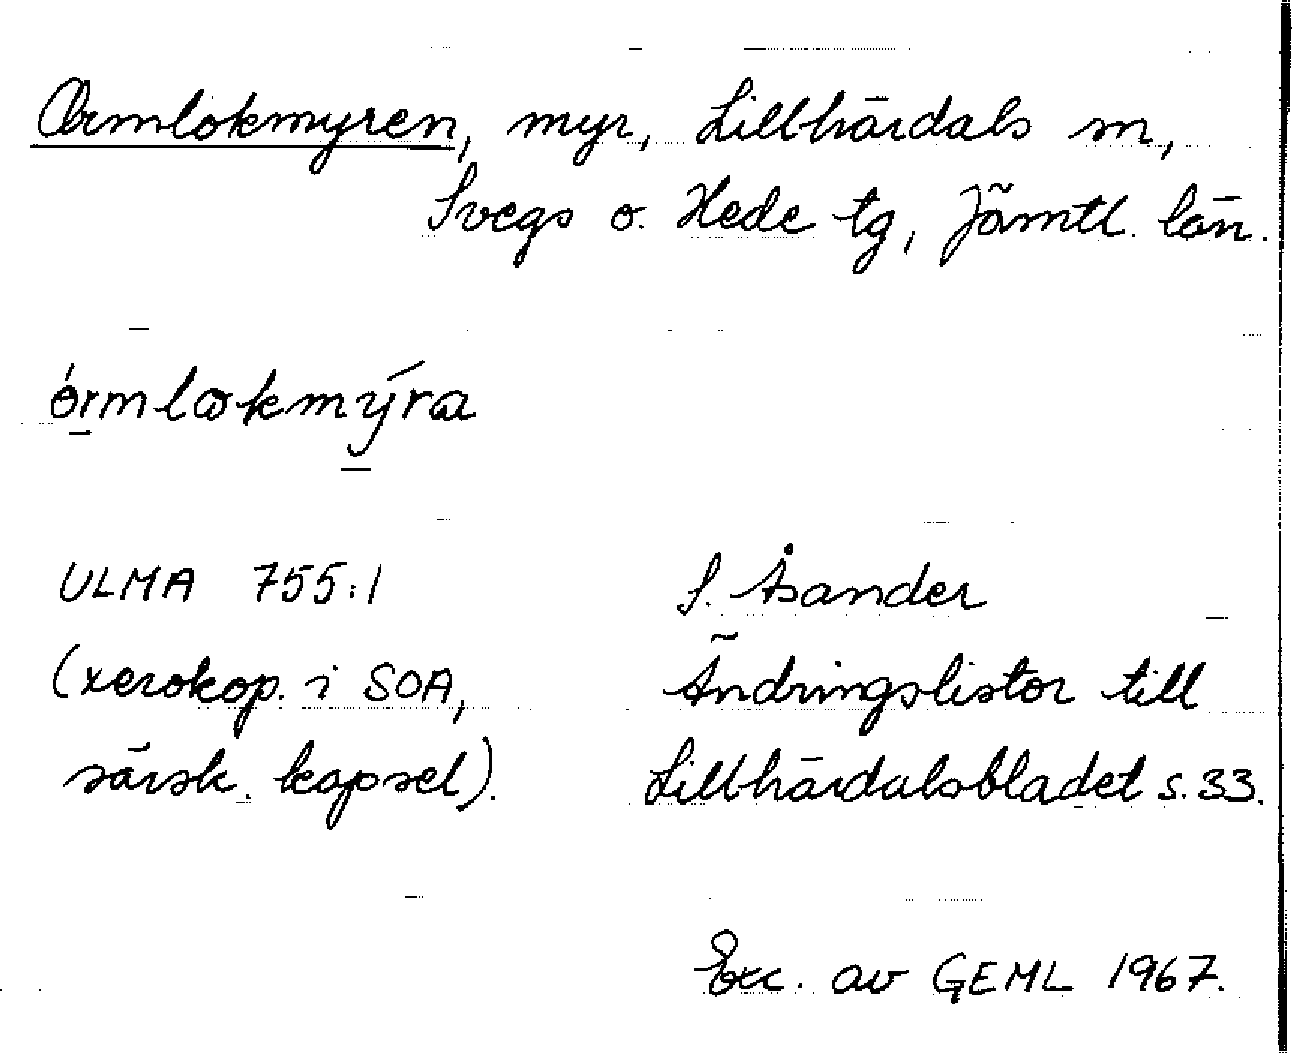 Ormlokmyren, myr, Lillhärdals sn,
Svegs o. Hede tg, Jämtl. län.
órmlωkmýra
ULMA 755:1 S. Åsander
(xerokop. i SOA, Ändringslistor till
särsk. kapsel). Lillhärdalsbladet s. 33.
Exc. av GEML 1967.